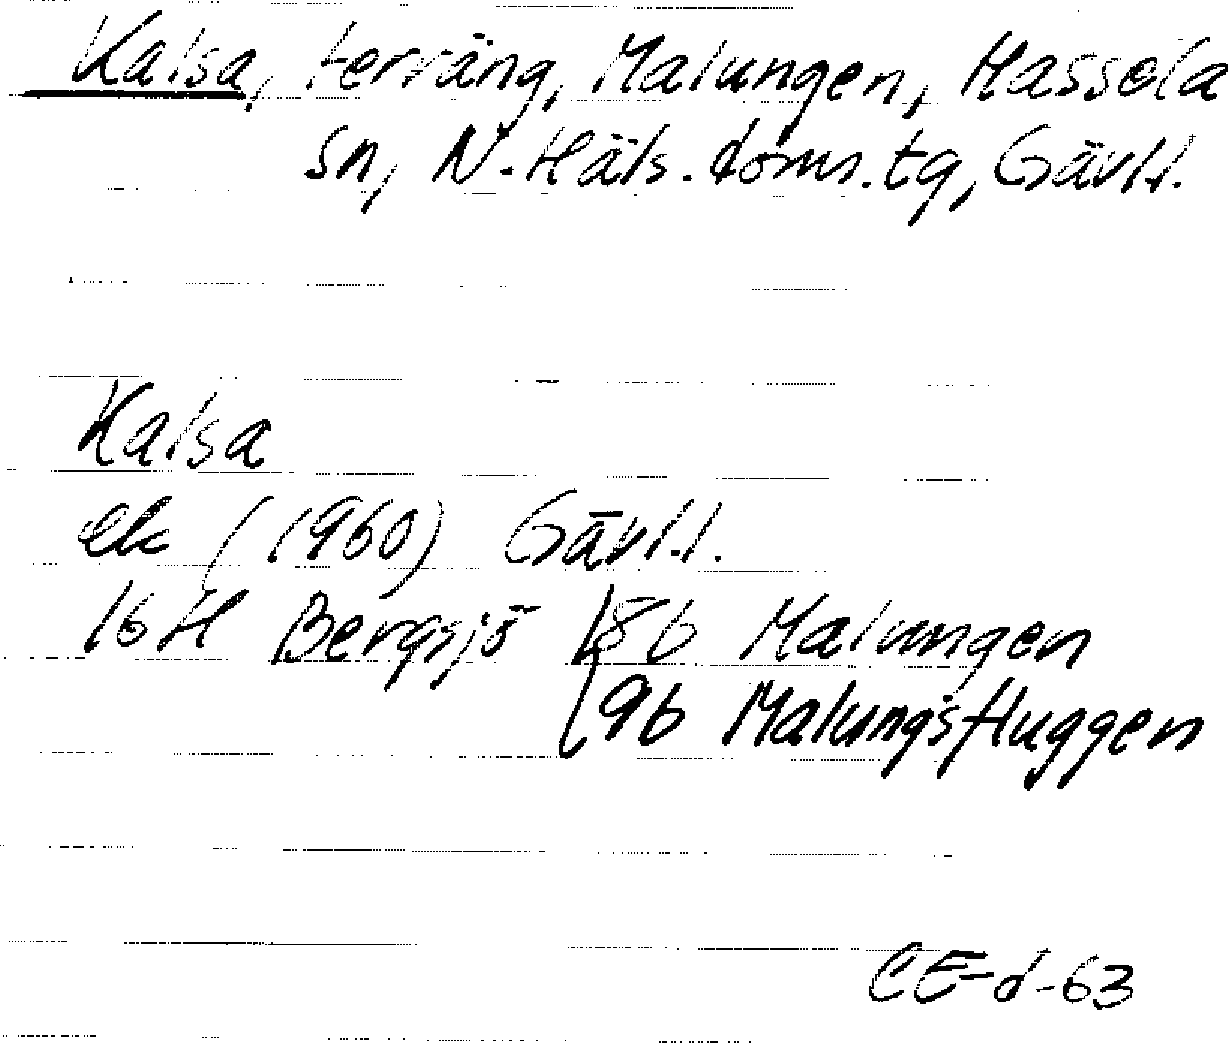 Kalsa, terräng, Malungen, Hassela
sn, N. Häls. doms. tg, Gävl.l.
Kalsa
ek (1960) Gävl.l.
16 H Bergsjö 8b Malungen
9b Malungsfluggen
CE-d-63